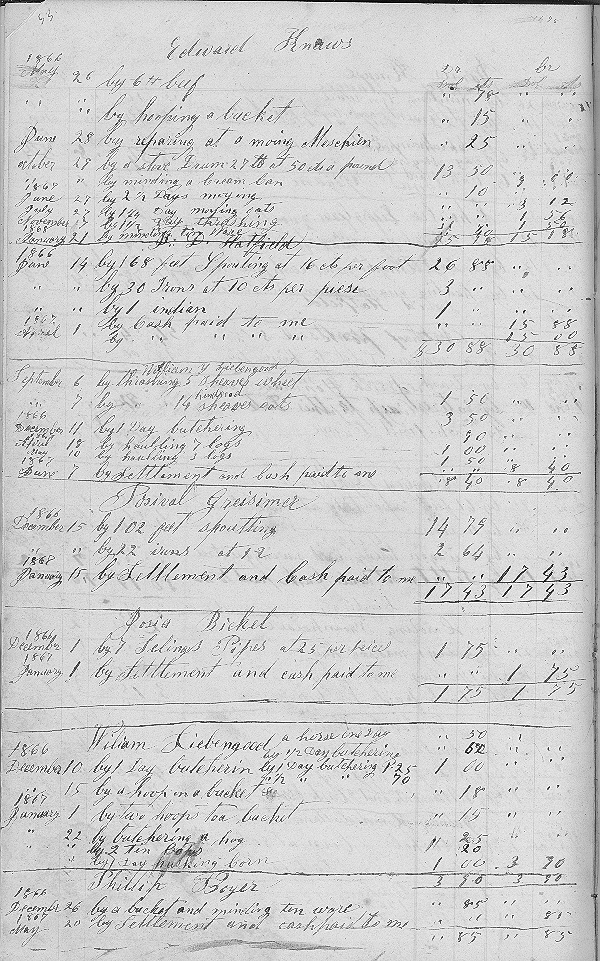 Edward Knaws
Dr Cr
1866 Dol cts Dol cts
May 26 by 6 lb beef " 78 " "
" " " by hooping a bucket " 15 " "
June 28 by repairing at a moing Meschien " 25 " "
october 27 by a stove Drum 27 lb at 50 cts a pound 13 50
" by minding a cream can " 10
1867
June 27 by 2 1/2 Days moying 3 12
July 27 by 1 1/4 Day moying oats 1 56
November by 1 1/2 Day thrashing 1 50
1868
January 21 by minding tin ware
15 18 15 18
B. D. Hatfield
1866
June 14 by 168 feet Spouting at 16 cts per foot 26 88 " "
" " by 30 Irons at 10 cts per piese 3 " " "
" " by 1 indian 1 " " "
1867 by Cash paid to me " " 15 88
April 1 by " " " " 15 00
$ 30 88 30 88
William Y Liebengood
September 6 by thrashing 5 sheaves wheat
" 7 by " 14 hundred sheaves oats 1 50 " "
1866 3 50 " "
December 11 by 1 Day butchering 90 " "
April 18 by haulding 7 logs 1 00 " "
May 10 by haulding 3 logs 1 50
1867
June 7 by Settlement and Cash paid to me " " 8 40
8 40 8 40
Greisimer
1865
December 15 by 102 feet spoutting 14 79 " "
" " by 22 irons at 12 2 64 " "
1868
January 15 by Settlement and Cash paid to me " " 17 43
17 43 17 43
Josia Bickel
1866
December 1 by 7 Pipes at 25 per piece 1 75 " "
1867
January 1 by Settlement and cash paid to me " " 1 75
1 75 1 75
William Liebengood a horse one day " 50 "
1866 by 1/2 Day butchering " 62 "
December 10 by 1 Day butcherin by 1 Day butchering 1.25 1 00 " "
" 15 by a hoop on a bucket " 18 " "
1867
January 1 by two hoops to a bucket " 15 " "
" 22 by butchering a hog " 25 " "
" by 2 tin Cops 20
by 1 Day husking Corn 1 00 3 90
3 90 3 90
Phillip Boyer
1866
December 26 by a bucket and minding ten ware " 85 " "
1867
May 20 by Settlement and cash paid to me " " " 85
" 85 " 85